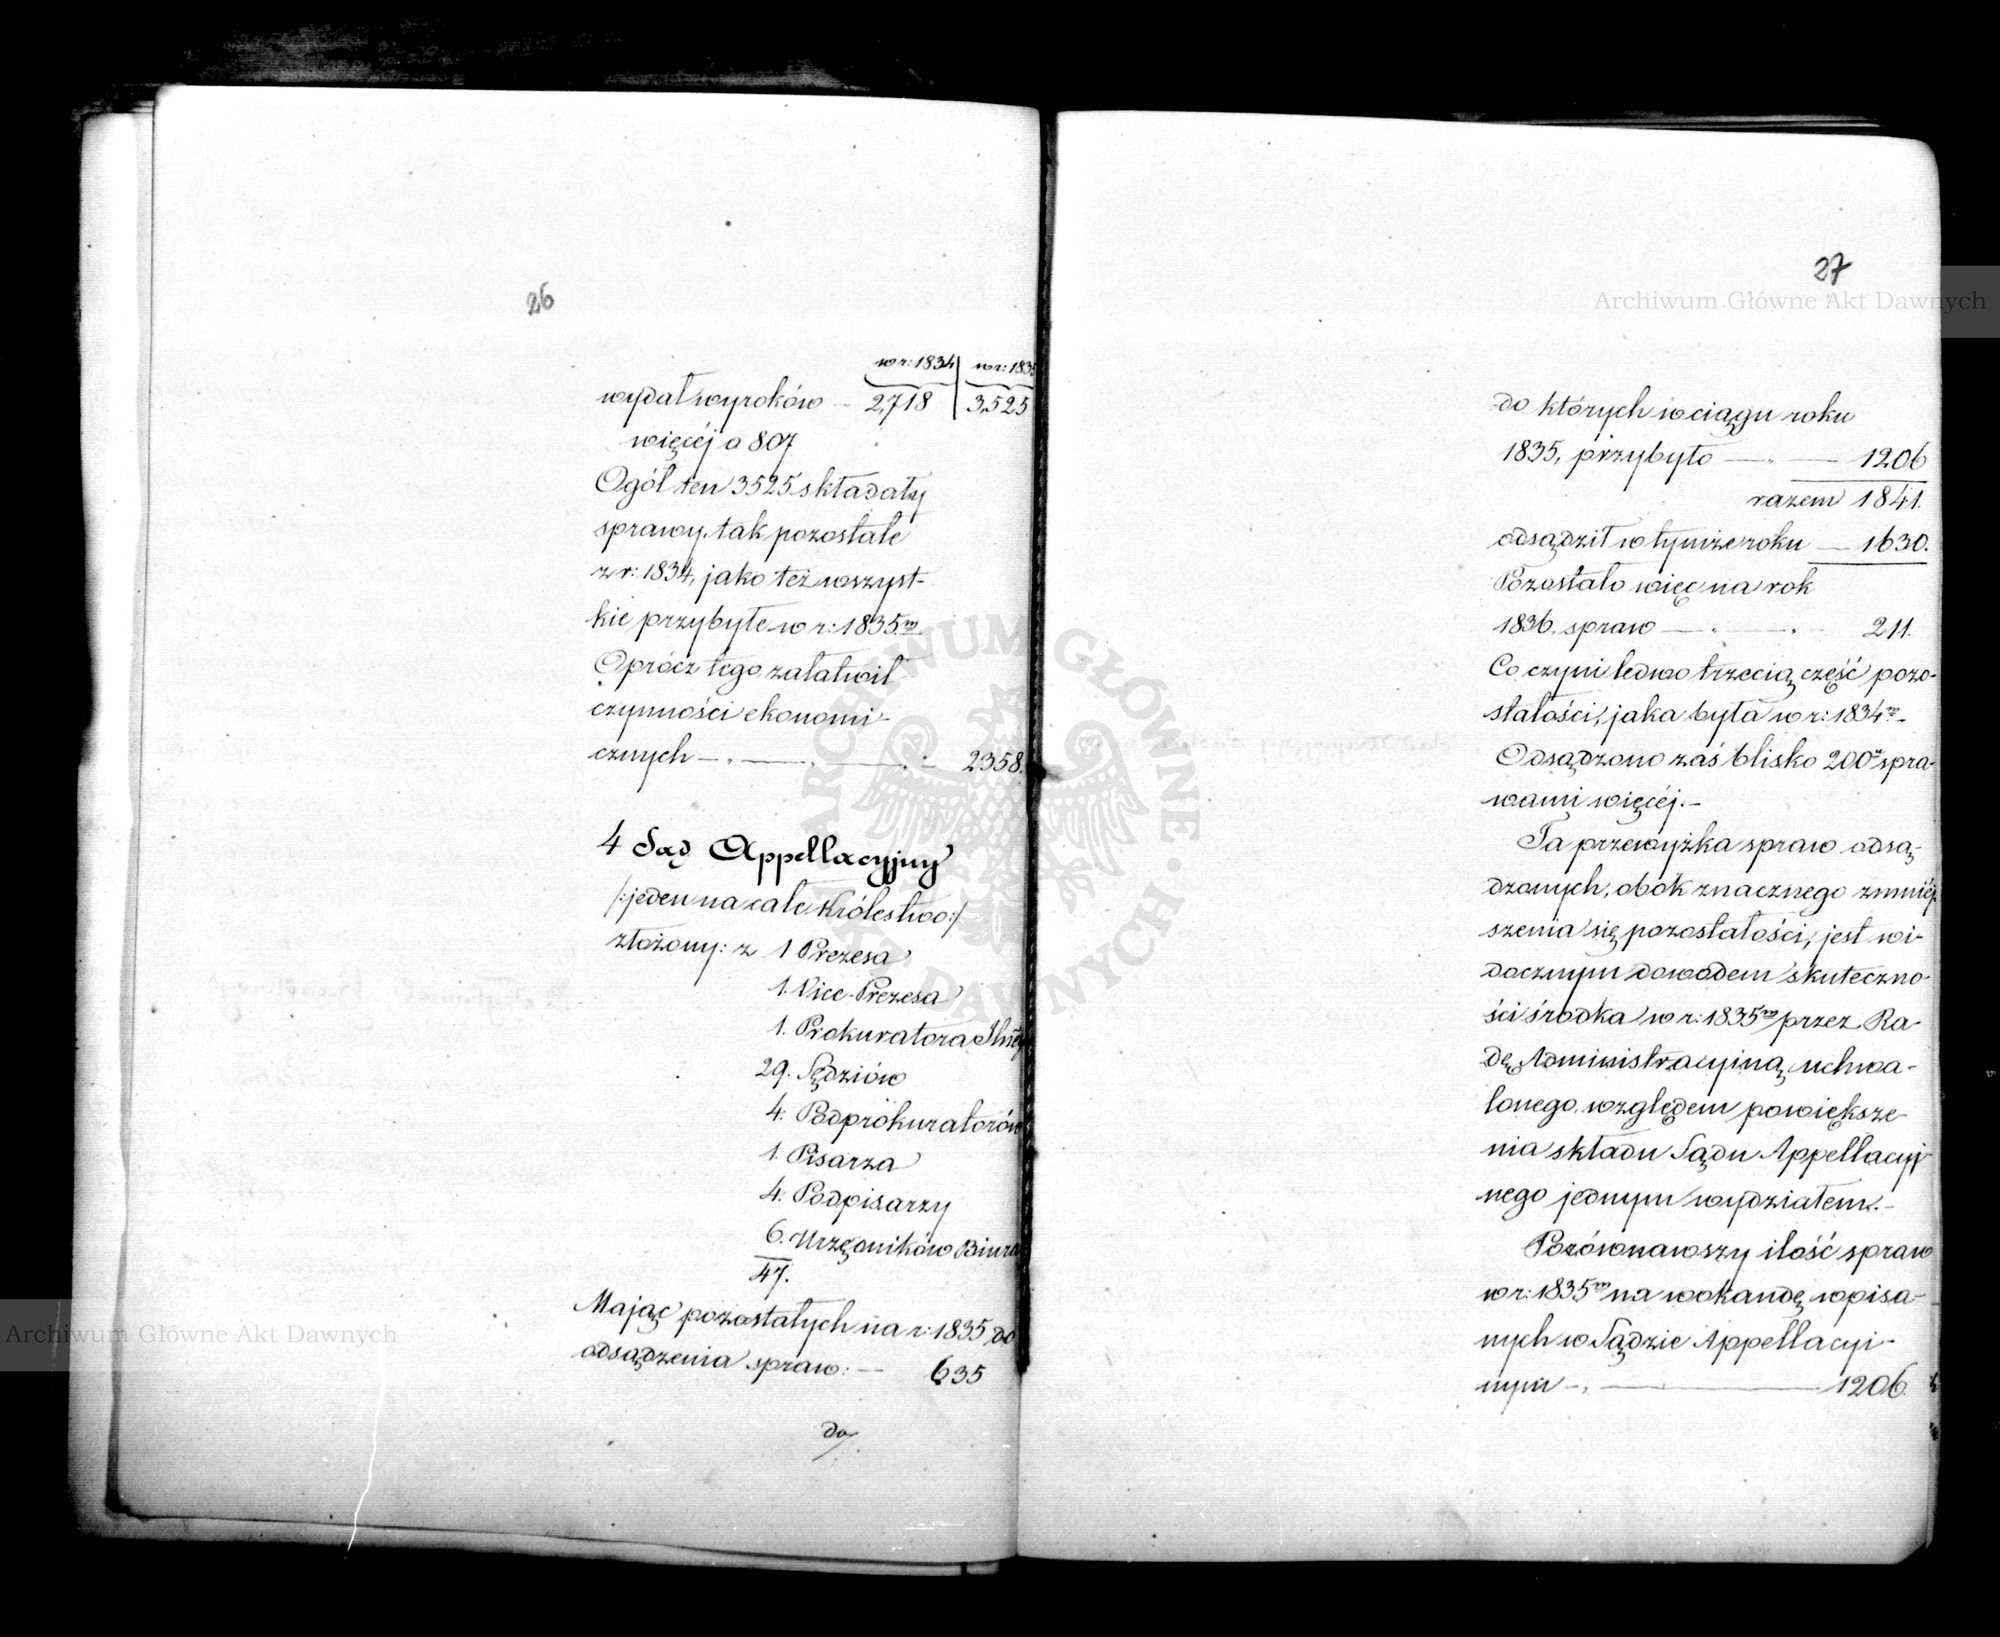 26
w r: 1834 | w r: 1835
wydał wyroków — 2,718 | 3,525
więcéj o 807
Ogół ten 3525 składały
sprawy, tak pozostałe
z r: 1834, jako też wszyst-
kie przybyłe w r: 1835.m
Oprócz tego załatwił
czynności ekonomi-
cznych — 2358.
4 Sąd Appellacyjny
/:jeden na całe Królestwo:/
złożony: z 1 Prezesa
1. Vice-Prezesa
1. Prokuratora
29. Sędziów
4. Podprokuratorów
1. Pisarza
4. Podpisarzy
6. Urzędników Biura
47.
Mając pozostałych na r: 1835 do
odsądzenia spraw: — 635
do
27
do których w ciągu roku
1835, przybyło — 1206
razem 1841.
odsądził w tymże roku — 1630.
Pozostało więc na rok
1836. spraw — 211.
Co czyni ledwo trzecią część pozo-
stałości, jaka była w r: 1834m
Odsądzono zaś blisko 200u spra-
wami więcéj.-
Ta przewyżka spraw odsą-
dzonych, obok znacznego zmniéj
szenia się pozostałości, jest wi-
docznym dowodem skuteczno-
ści środka w r: 1835m przez Ra-
dę Administracyiną uchwa-
lonego, względem powiększe-
nia składu Sądu Appellacyj
nego jednym wydziałem.-
Porównawszy ilość spraw
w r: 1835m na wokandę wpisa-
nych w Sądzie Appellacyi-
nym — 1206.
Archiwum Główne Akt Dawnych
Archiwum Główne Akt Dawnych
ARCHIWUM GŁÓWNE AKT DAWNYCH